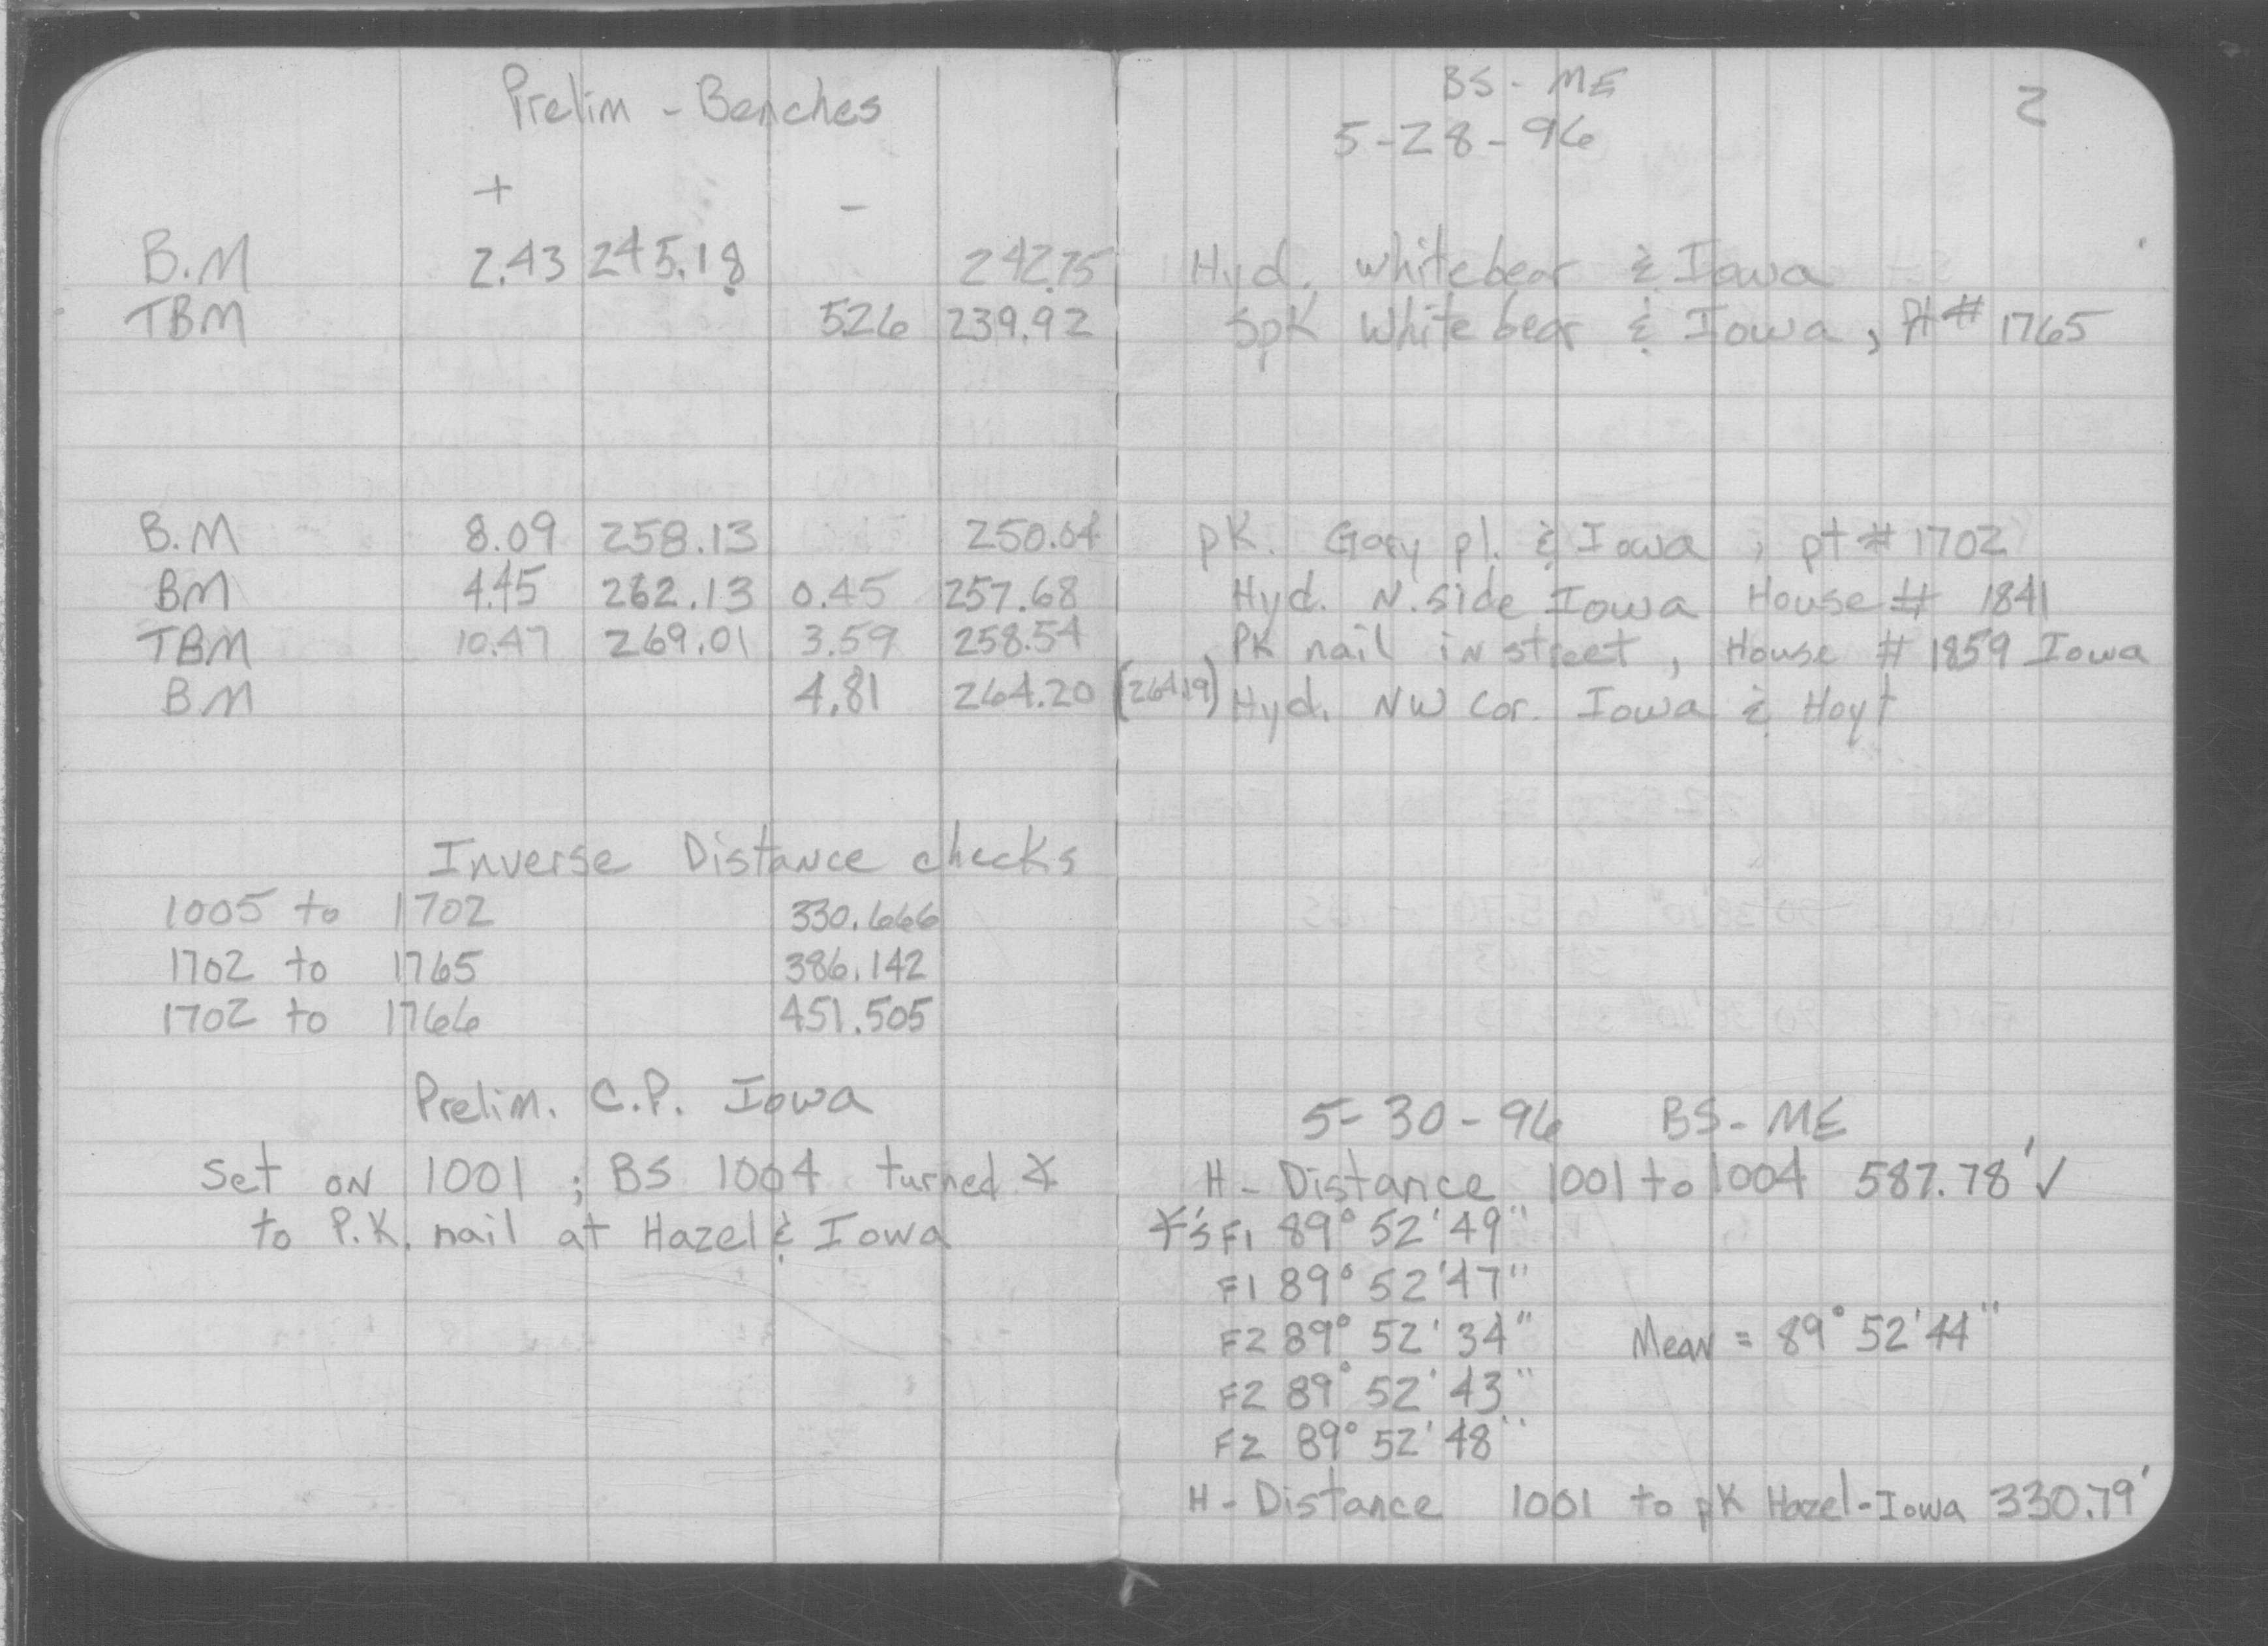 Prelim - Benches
+ -
B.M 2.43 245.18 242.75
TBM 526 239.92
B.M 8.09 258.13 250.04
BM 4.45 262.13 0.45 257.68
TBM 10.47 269.01 3.59 258.54
BM 4.81 264.20
Inverse Distance checks
1005 to 1702 330.666
1702 to 1765 386.142
1702 to 1766 451.505
Prelim. C.P. Iowa
Set on 1001 ; BS 1004 turned ∡
to P.K. nail at Hazel & Iowa
BS - ME 2
5-28-96
Hyd. Whitebear & Iowa
Spk White bear & Iowa, Pt# 1765
pK. Gary pl. & Iowa ; pt # 1702
Hyd. N. side Iowa House # 1841
PK nail in street, House # 1859 Iowa
(264.19) Hyd. NW Cor. Iowa & Hoyt
5-30-96 BS-ME
H-Distance 1001 to 1004 587.78' ✓
∡'s F1 89° 52' 49"
F1 89° 52' 47"
F2 89° 52' 34" Mean = 89° 52' 44"
F2 89° 52' 43"
F2 89° 52' 48"
H-Distance 1001 to pK Hazel-Iowa 330.79'